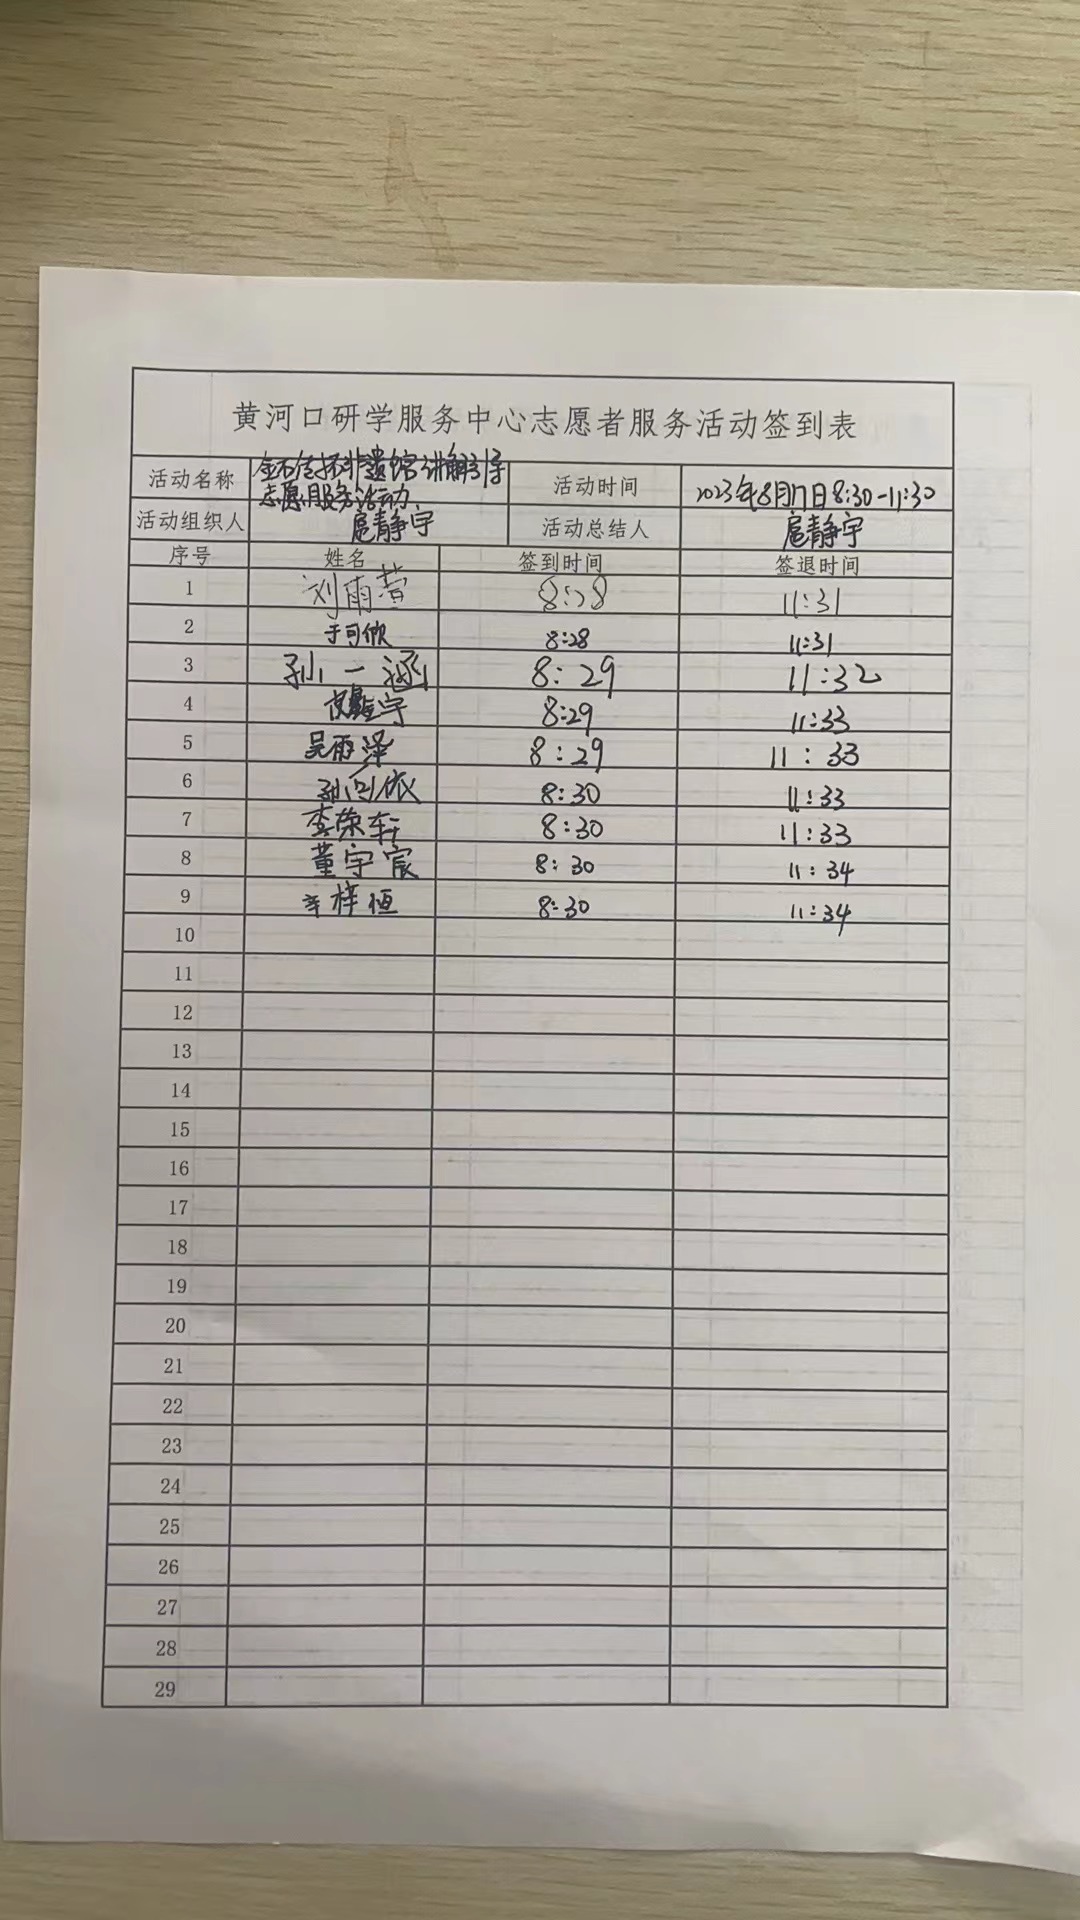 黄河口研学服务中心志愿者服务活动签到表
活动名称 金石传拓非遗馆讲解引导志愿服务活动 活动时间 2023年8月17日8:30-11:30
活动组织人 扈静宇 活动总结人 扈静宇
序号 姓名 签到时间 签退时间
1 刘雨萱 8:28 11:31
2 于可欣 8:28 11:31
3 孙一涵 8:29 11:32
4 8:29 11:33
5 吴雨泽 8:29 11:33
6 孙 依 8:30 11:33
7 李荣轩 8:30 11:33
8 董宇宸 8:30 11:34
9 辛梓恒 8:30 11:34
10
11
12
13
14
15
16
17
18
19
20
21
22
23
24
25
26
27
28
29